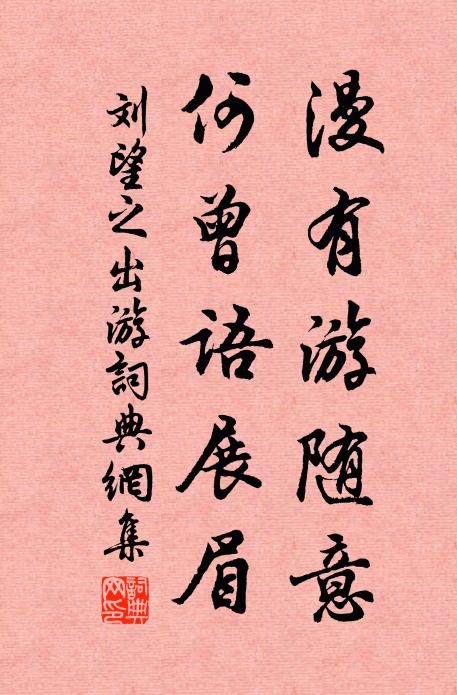 漫有游随意
何曾语展眉
刘望之出游詞典網集
詞典网印